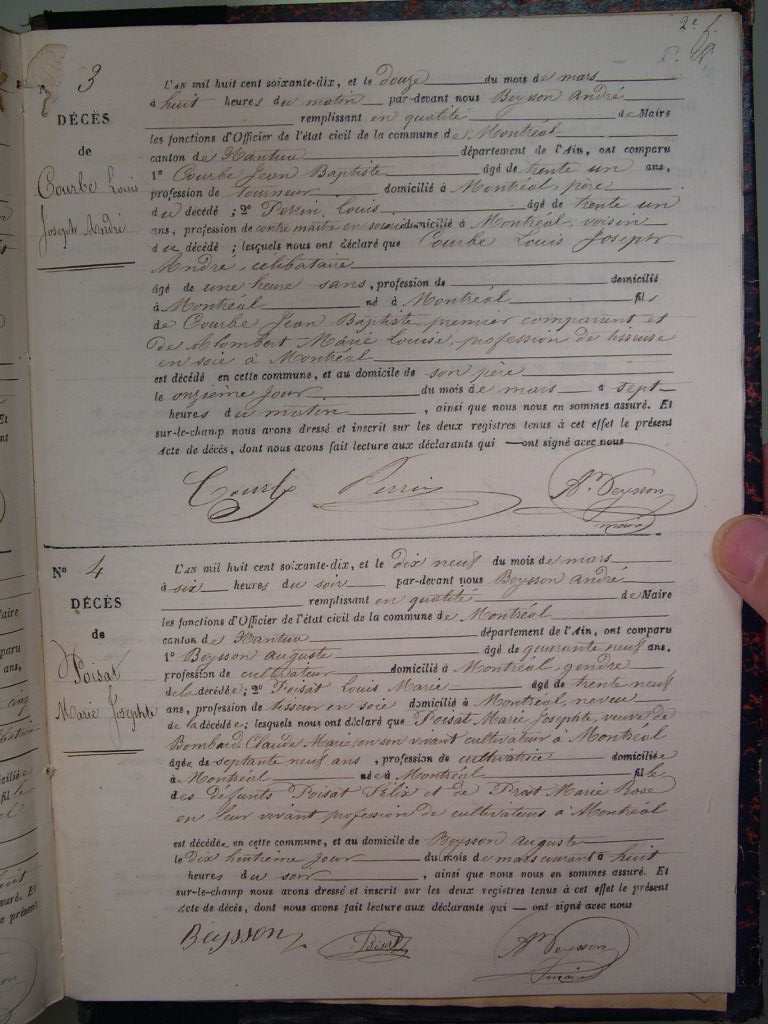 2e f.
No 3
DÉCÈS
de
Courbe Louis
Joseph André
L'AN mil huit cent soixante-dix, et le douze du mois de mars
à huit heures du matin par-devant nous Beysson André
remplissant en qualité de Maire
les fonctions d'Officier de l'état civil de la commune de Montréal
canton de Nantua département de l'Ain, ont comparu
1o Courbe Jean Baptiste âgé de trente un ans,
profession de tourneur domicilié à Montréal, père
du décédé ; 2o Perrin Louis âgé de trente un
ans, profession de contre maitre en soierie domicilié à Montréal, voisin
du décédé ; lesquels nous ont déclaré que Courbe Louis Joseph
André, célibataire
âgé de une heure sans, profession de domicilié
à Montréal né à Montréal fils
de Courbe Jean Baptiste premier comparant et
de Alombert Marie Louise, profession de tisseuse
en soie à Montréal
est décédé en cette commune, et au domicile de son père
le onzième jour du mois de mars à sept
heures du matin , ainsi que nous nous en sommes assuré. Et
sur-le-champ nous avons dressé et inscrit sur les deux registres tenus à cet effet le présent
Acte de décès, dont nous avons fait lecture aux déclarants qui — ont signé avec nous
Courbe Perrin An Beysson
maire
No 4
DÉCÈS
de
Poisat
Marie Josephte
L'AN mil huit cent soixante-dix, et le dix neuf du mois de mars
à six heures du soir par-devant nous Beysson André
remplissant en qualité de Maire
les fonctions d'Officier de l'état civil de la commune de Montréal
canton de Nantua département de l'Ain, ont comparu
1o Beysson Auguste âgé de quarante neuf ans,
profession de cultivateur domicilié à Montréal, gendre
de la décédée ; 2o Poisat Louis Marie âgé de trente neuf
ans, profession de tisseur en soie domicilié à Montréal, neveu
de la décédée ; lesquels nous ont déclaré que Poisat Marie Josephte, veuve de
Bombard Claude Marie, en son vivant cultivateur à Montréal
âgée de septante neuf ans , profession de cultivatrice domiciliée
à Montréal née à Montréal fille
des défunts Poisat Félix et de Prost Marie Rose
en leur vivant profession de cultivateurs à Montréal
est décédée en cette commune, et au domicile de Beysson Auguste
le dix huitième jour du mois de mars courant à huit
heures du soir , ainsi que nous nous en sommes assuré. Et
sur-le-champ nous avons dressé et inscrit sur les deux registres tenus à cet effet le présent
Acte de décès, dont nous avons fait lecture aux déclarants qui — ont signé avec nous
Beysson Poisat An Beysson
maire